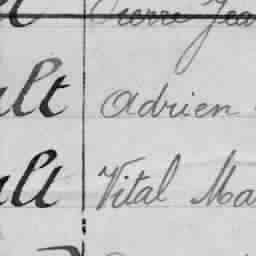 Pierre Jea
ult Adrien
ult Vital Ma